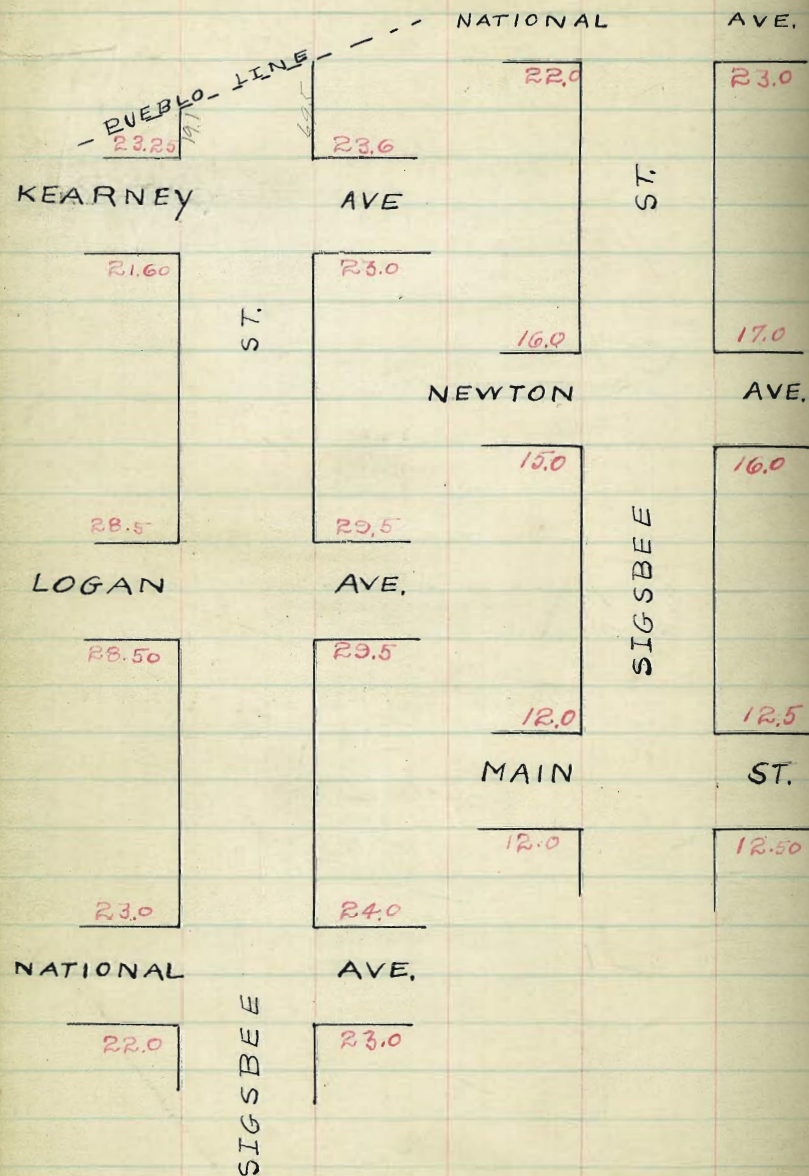 PUEBLO LINE
19.1
69.5
23.25
23.6
KEARNEY AVE
21.60
23.0
ST.
28.5
29.5
LOGAN AVE.
28.50
29.5
23.0
24.0
NATIONAL AVE.
22.0
23.0
SIGSBEE
NATIONAL AVE.
22.0
23.0
ST.
16.0
17.0
NEWTON AVE.
15.0
16.0
SIGSBEE
12.0
12.5
MAIN ST.
12.0
12.50